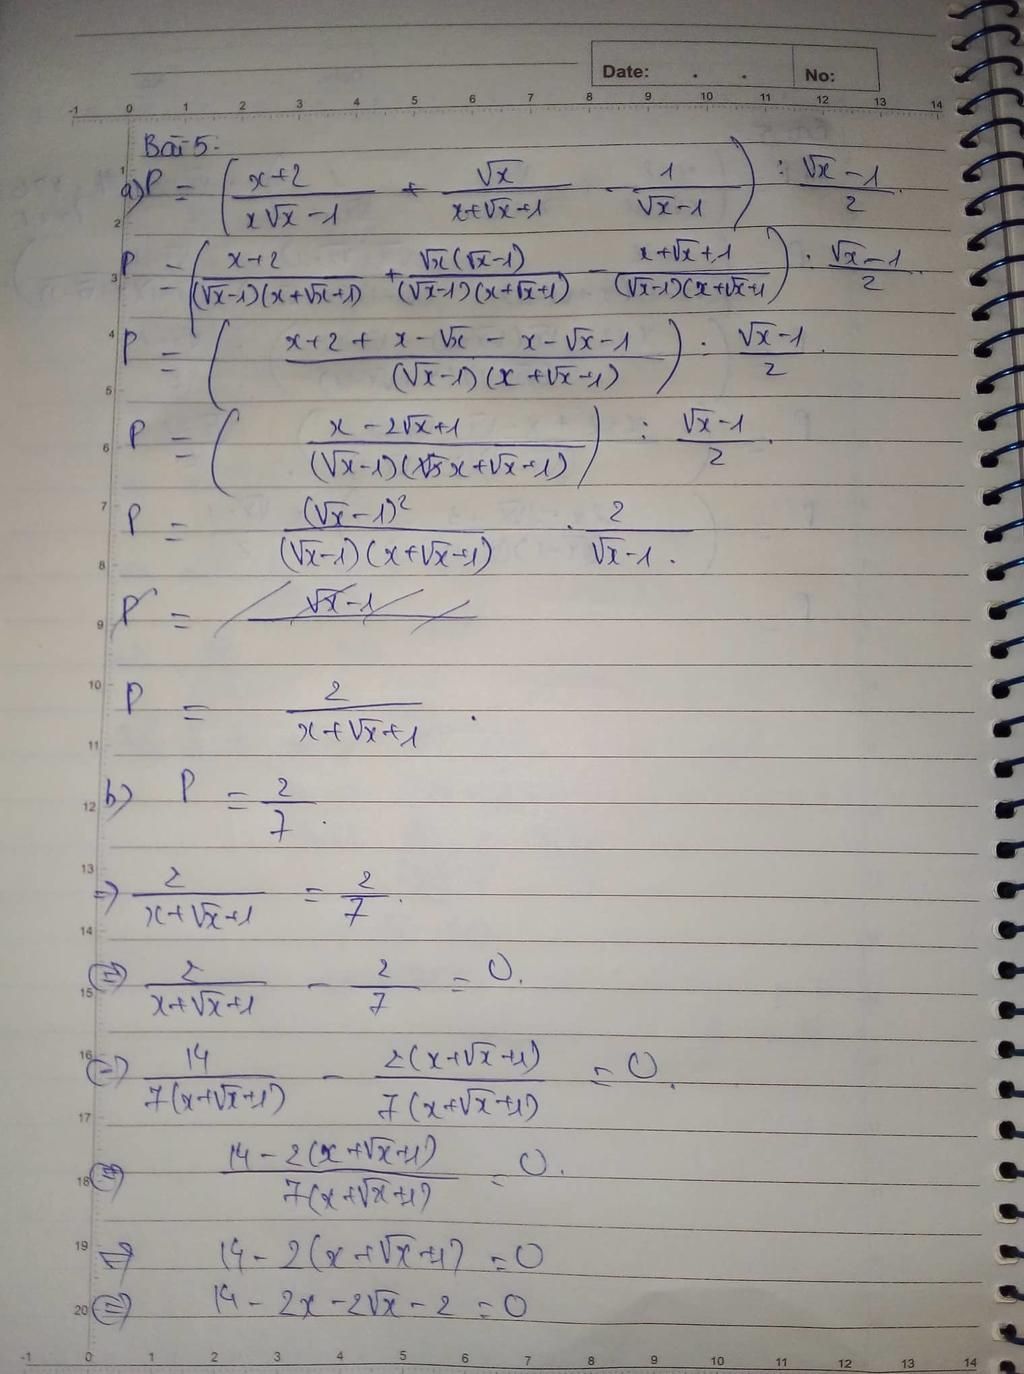 Date: . . No:
-1 0 1 2 3 4 5 6 7 8 9 10 11 12 13 14
Bài 5:
a) P = ( (x+2)/(x√x -1) + √x/(x+√x+1) - 1/(√x-1) ) : (√x -1)/2.
P = ( (x+2)/((√x-1)(x+√x+1)) + √x(√x-1)/((√x-1)(x+√x+1)) - (x+√x+1)/((√x-1)(x+√x+1)) ) : (√x-1)/2.
P = ( (x+2+x-√x-x-√x-1)/((√x-1)(x+√x+1)) ) : (√x-1)/2.
P = ( (x-2√x+1)/((√x-1)(x+√x+1)) ) : (√x-1)/2.
P = (√x-1)²/((√x-1)(x+√x+1)) . 2/(√x-1).
P = √x-1
P = 2/(x+√x+1).
b) P = 2/7.
=> 2/(x+√x+1) = 2/7.
⇔ 2/(x+√x+1) - 2/7 = 0.
⇔ 14/(7(x+√x+1)) - 2(x+√x+1)/(7(x+√x+1)) = 0.
⇔ (14-2(x+√x+1))/(7(x+√x+1)) = 0.
⇔ 14-2(x+√x+1) = 0
⇔ 14-2x-2√x-2 = 0
1
2
3
4
5
6
7
8
9
10
11
12
13
14
15
16
17
18
19
20
-1 0 1 2 3 4 5 6 7 8 9 10 11 12 13 14